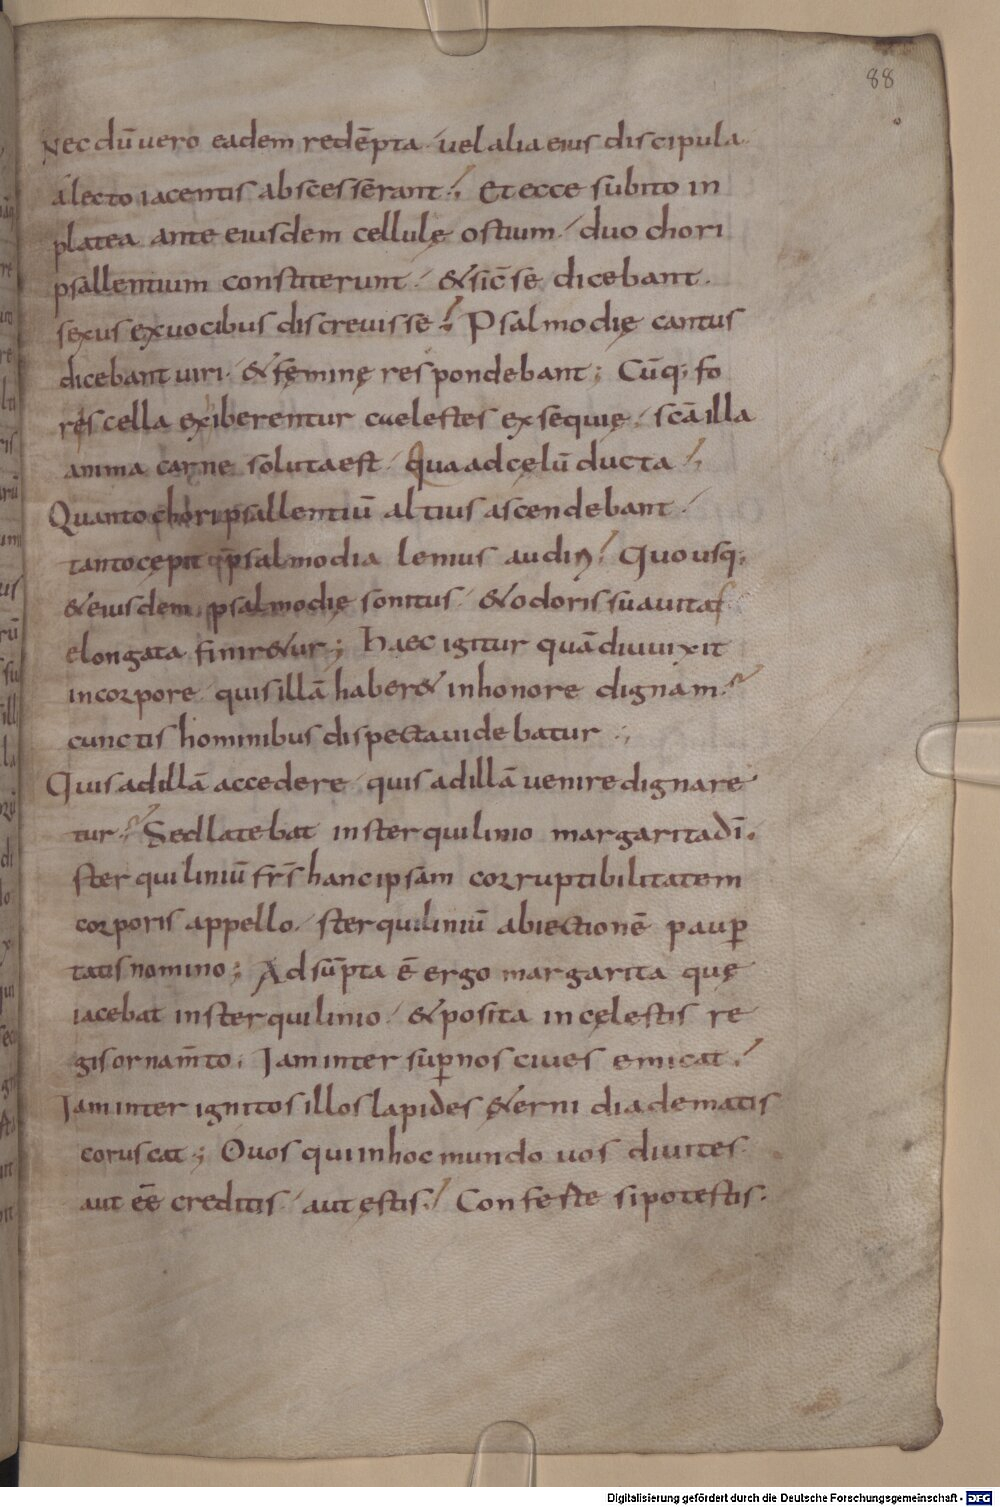 88
Nec dū uero eadem redēpta · uel alia eius discipula
a lecto iacentis abscesserant; Et ecce subito in
platea ante eiusdem cellulę ostium · duo chori
psallentium constiterunt · & sic̄ se dicebant ·
sexus ex uocibus discreuisse; Psalmodię cantus
dicebant uiri · & fęminę respondebant; Cūq; fo
res cella exiberentur caelestes exsequię · scā illa
anima carne soluta est · Qua ad cęlū ducta;
Quanto chori psallentiū altius ascendebant ·
tanto cępit psalmodia lenius audiri; Quousq;
& eiusdem psalmodię sonitus · & odoris suauitas
elongata finir&ur; Haec igitur quādiu uixit
in corpore · quis illā haber& in honore dignam?
cunctis hominibus dispecta uidebatur;
Quis ad illā accedere · quis ad illā uenire dignare
tur? Sed latebat in sterquilinio margarita dī ·
sterquiliniū frs̄ hanc ipsam corruptibilitatem
corporis appello · sterquiliniū abiectionē paup
tatis nomino; Adsūpta ē ergo margarita quę
iacebat in sterquilinio · & posita in cęlestis re
gis ornam̄to · Iam inter supnos ciues emicat;
Iam inter ignitos illos lapides &erni diadematis
coruscat; O uos qui in hoc mundo uos diuites
aut eē creditis · aut estis; Conferte si potestis ·
Digitalisierung gefördert durch die Deutsche Forschungsgemeinschaft - DFG